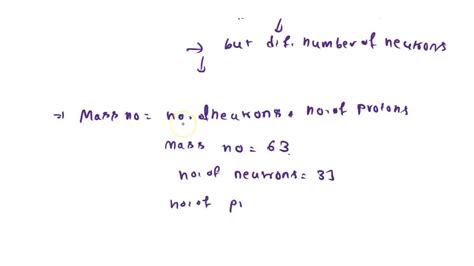 → but dif. number of neurons
→ Mass no = no. of neurons + no. of protons
mass no = 63
no. of neurons = 33
no. of p